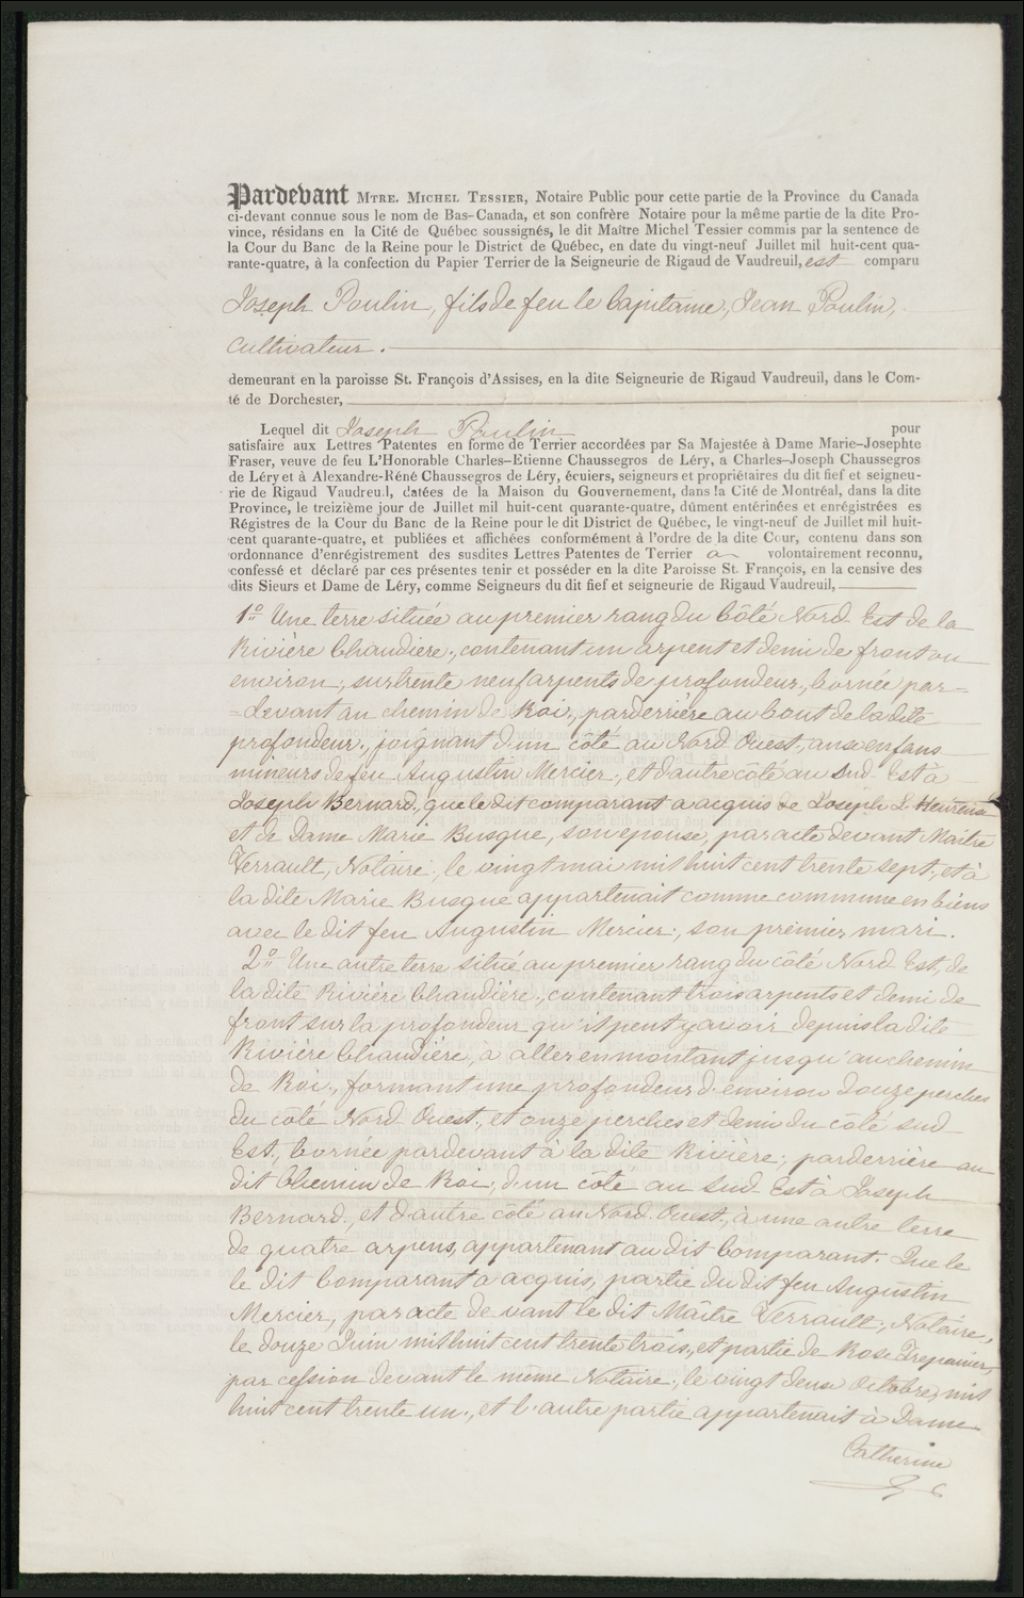 Pardevant MTRE. MICHEL TESSIER, Notaire Public pour cette partie de la Province du Canada
ci-devant connue sous le nom de Bas-Canada, et son confrère Notaire pour la même partie de la dite Pro-
vince, résidans en la Cité de Québec soussignés, le dit Maître Michel Tessier commis par la sentence de
la Cour du Banc de la Reine pour le District de Québec, en date du vingt-neuf Juillet mil huit-cent qua-
rante-quatre, à la confection du Papier Terrier de la Seigneurie de Rigaud de Vaudreuil, est comparu
Joseph Poulin, fils de feu le Capitaine, Jean Poulin,
Cultivateur.
demeurant en la paroisse St. François d'Assises, en la dite Seigneurie de Rigaud Vaudreuil, dans le Com-
té de Dorchester,
Lequel dit Joseph Poulin pour
satisfaire aux Lettres Patentes en forme de Terrier accordées par Sa Majestée à Dame Marie-Josephte
Fraser, veuve de feu L'Honorable Charles-Etienne Chaussegros de Léry, a Charles-Joseph Chaussegros
de Léry et à Alexandre-Réné Chaussegros de Léry, écuiers, seigneurs et propriétaires du dit fief et seigneu-
rie de Rigaud Vaudreuil, datées de la Maison du Gouvernement, dans la Cité de Montréal, dans la dite
Province, le treizième jour de Juillet mil huit-cent quarante-quatre, dûment entérinées et enrégistrées es
Régistres de la Cour du Banc de la Reine pour le dit District de Québec, le vingt-neuf de Juillet mil huit-
cent quarante-quatre, et publiées et affichées conformément à l'ordre de la dite Cour, contenu dans son
ordonnance d'enrégistrement des susdites Lettres Patentes de Terrier a volontairement reconnu,
confessé et déclaré par ces présentes tenir et posséder en la dite Paroisse St. François, en la censive des
dits Sieurs et Dame de Léry, comme Seigneurs du dit fief et seigneurie de Rigaud Vaudreuil,
1º Une terre située au premier rang du Côté Nord Est de la
Rivière Chaudiere, contenant un arpent et demi de front ou
environ, sur trente neuf arpents de profondeur, bornée par=
=devant au chemin de Roi, parderrière au bout de la dite
profondeur, joignant d'un côté au Nord Ouest, aux enfans
mineurs de feu Augustin Mercier, et d'autre côté au Sud Est à
Joseph Bernard, que le dit comparant a acquis de Joseph L'Heureux
et de Dame Marie Busque, son epouse, par acte devant Maitre
Verrault, Notaire, le vingt mai mil huit cent trente sept, et à
la dite Marie Busque appartenait comme commune en biens
avec le dit feu Augustin Mercier, son premier mari.
2º Une autre terre situé au premier rang du côté Nord Est, de
la dite Rivière Chaudière, contenant trois arpents et demi de
front sur la profondeur qu'il peut y avoir depuis la dite
Rivière Chaudière, à aller en montant jusqu'au chemin
de Roi, formant une profondeur d'environ douze perches
du côté Nord Ouest, et onze perches et demi du côté sud
Est, bornée pardevant à la dite Rivière, parderrière au
dit Chemin de Roi, d'un côté au Sud Est à Joseph
Bernard, et d'autre côté au Nord Ouest, à une autre terre
de quatre arpens, appartenant au dit Comparant. Que le
le dit Comparant a acquis, partie du dit feu Augustin
Mercier, par acte de vant le dit Maître Verrault, Notaire,
le douze Juin mil huit cent trente trois, et partie de Rose Trepanier,
par cession devant le même Notaire, le vingt deux Octobre, mil
huit cent trente un, et l'autre partie appartenait à Dame
Catherine